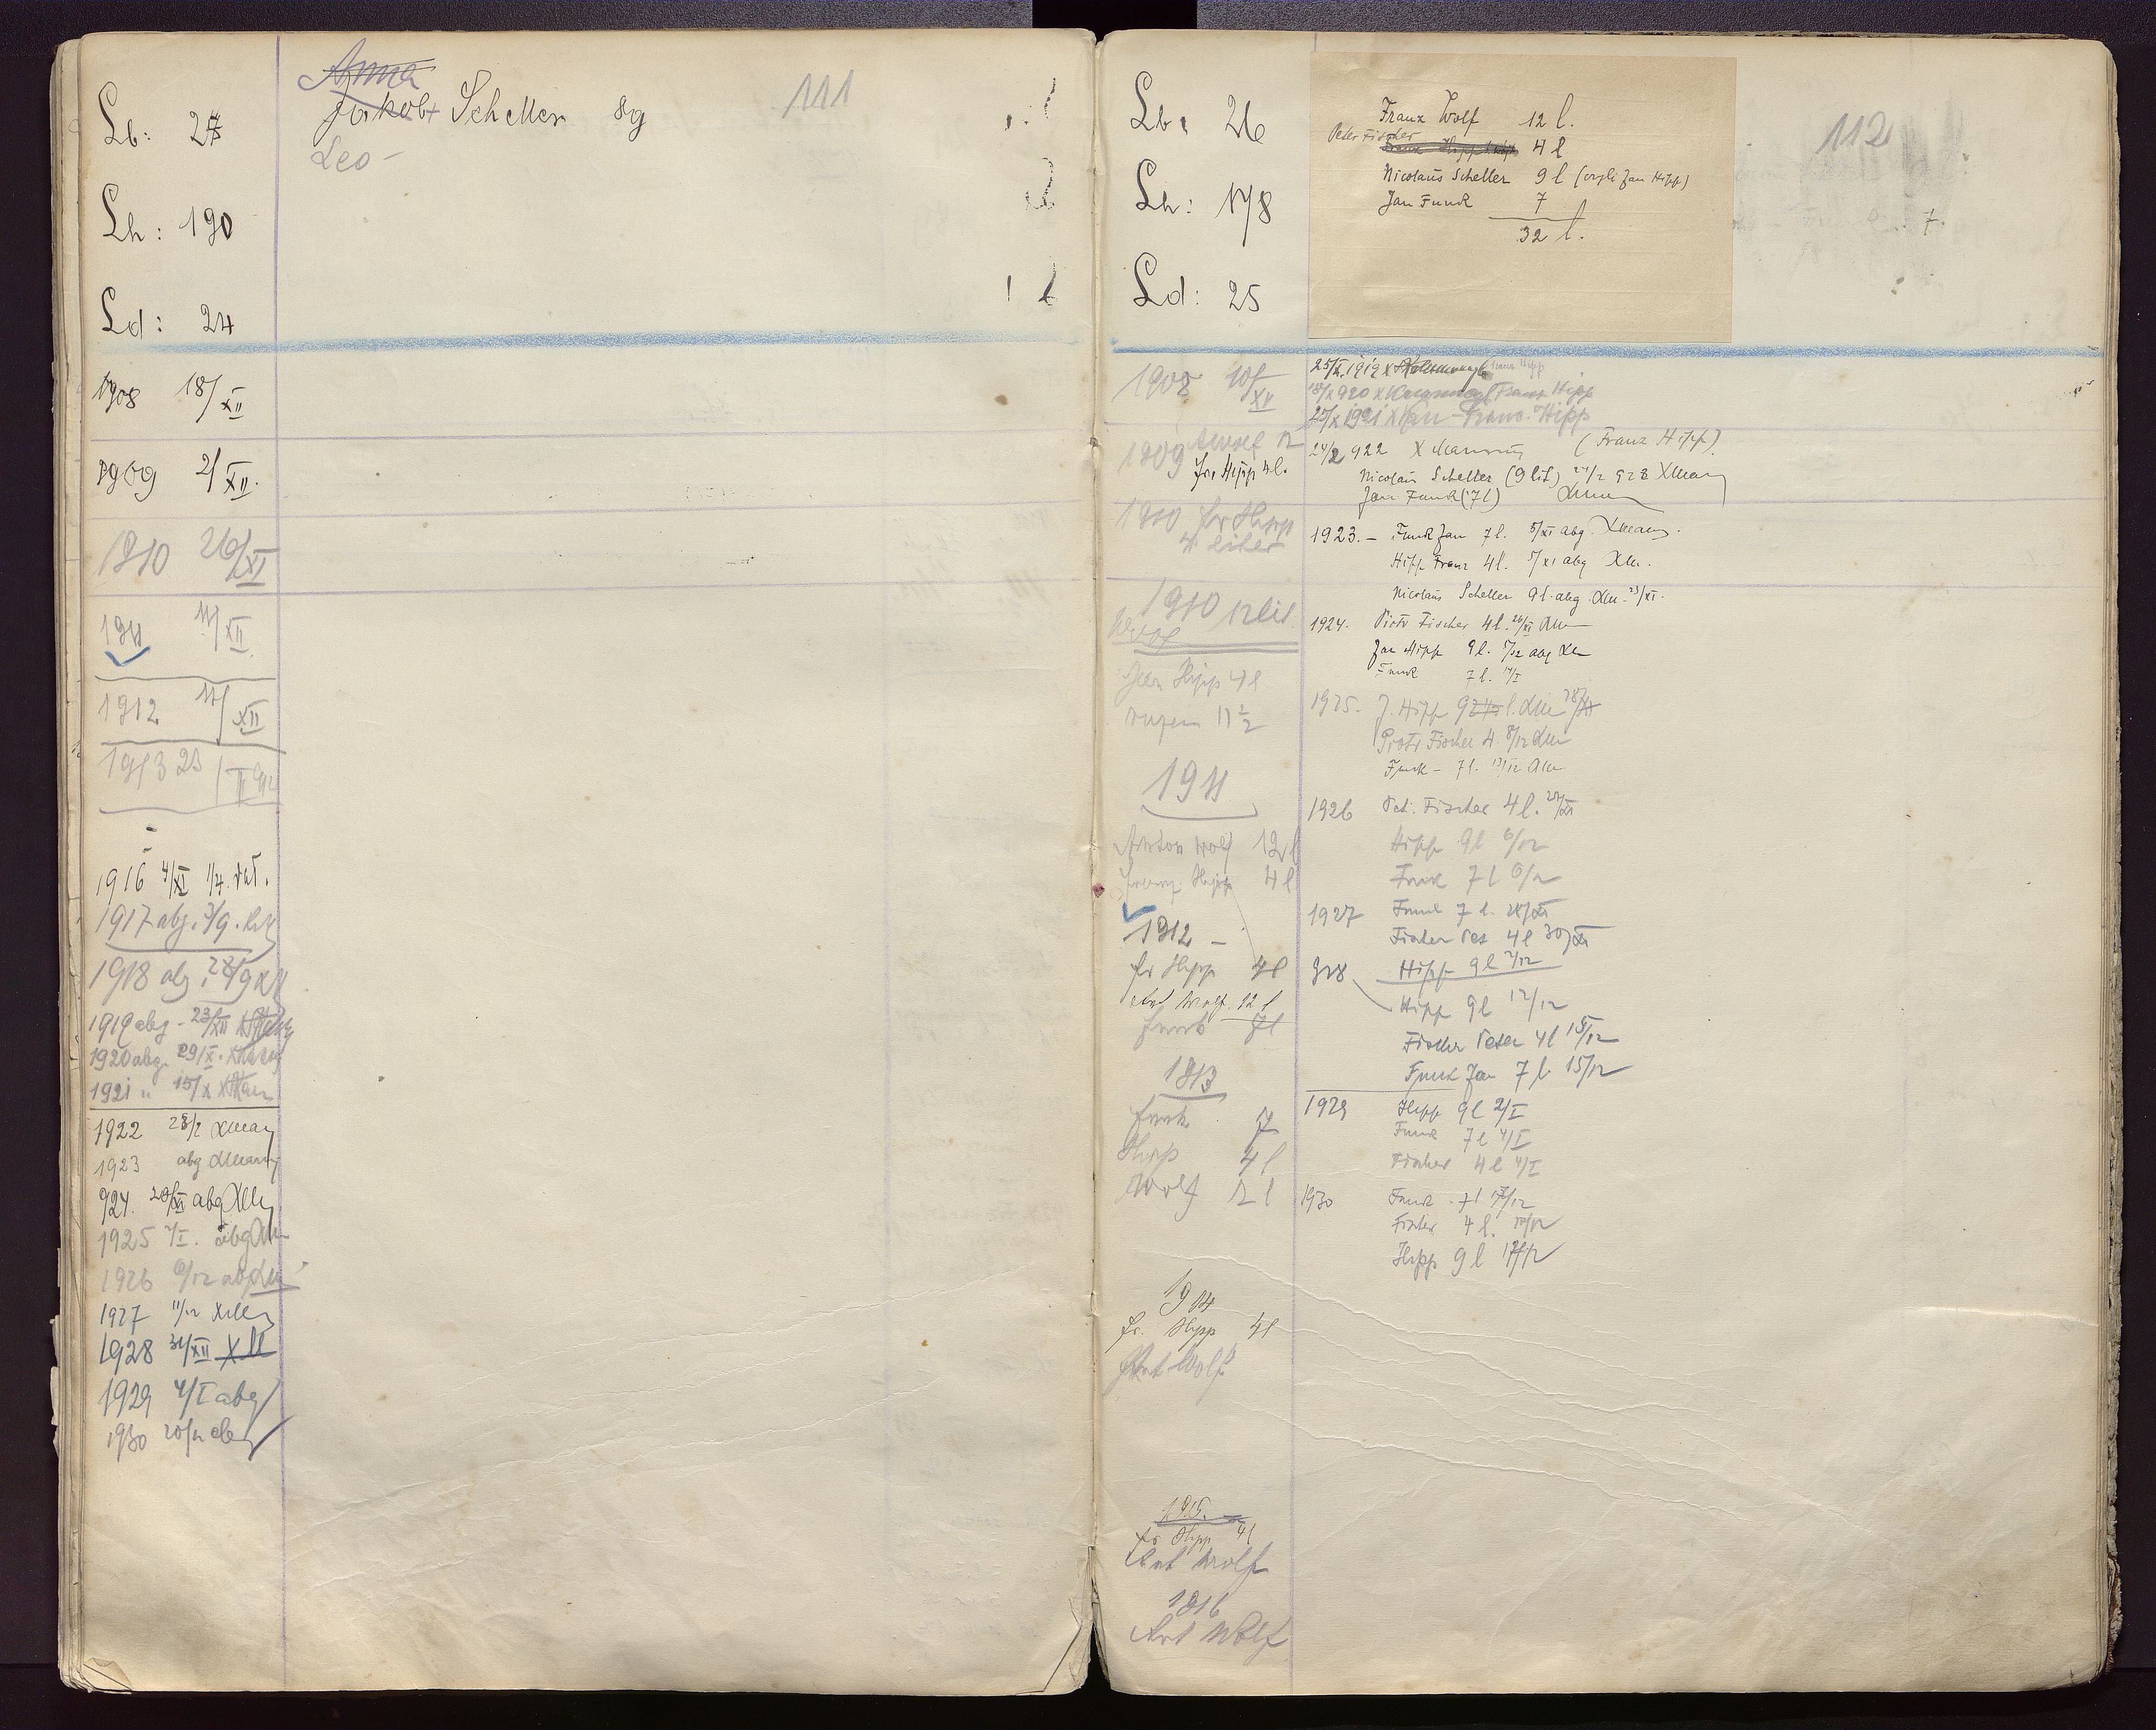 Lb: 27
Lh: 190
Ld: 24
Anna
Jakob Scheller 89
Leo -
111
1908 18/XII
1909 2/XII.
1910 26/XI
1911 11/XII
1912 11/XII
1913 23
1916 4/XI 1/4
1917 abg. 3/9.
1918 abg.
1919 abg - 23/XII
1920 abg. 29/X.
1921 " 15/X
1922 28/2 XMan
1923 abg XMan
924. 20/XI abg XM
1925 7/I. abg XM
1926 6/12 abg XM
1927 11/12 XM
1928 31/XII XM
1929 4/I abg
1930 20/12 abg
Lb: 26
Lh: 178
Ld: 25
Franz Wolf 12 l.
Peter Fischer 4 l
Nicolaus Scheller 9 l (Jan Hipp)
Jan Funk 7
32 l.
112
7.
1908 10/XII
1909 12
Fr. Hipp 4 l.
1910 Fr Hipp
4 liter
1910 12 lit
Wolf
Hipp 4 l
11 1/2
1911
Anton Wolf 12 l
Franz Hipp 4 l
1912 -
Fr Hipp 4 l
Ant Wolf 12 l
Funk 7 l
1913
Funk 7
Hipp 4 l
Wolf 12 l
1914
Fr. Hipp 4 l
Ant Wolf
1915.
Fr Hipp 4 l
Ant Wolf
1916
Ant Wolf
25/X 1919 X Franz Hipp
18/X 920 X Franz Hipp
25/X 1921 X Franz Hipp
24/2 922 X (Franz Hipp)
Nicolaus Scheller (9 lit) 24/2 923 XMan
Jan Funk (7 l) XMan
1923. - Funk Jan 7 l. 5/XI abg. XMan.
Hipp Franz 4 l. 5/XI abg XM.
Nicolaus Scheller 9 l. abg. XM. 23/XI.
1924. Piotr Fischer 4 l. 26/XI XM
Jan Hipp 9 l. 5/12 abg XM
Funk 7 l. 17/I
1925. J. Hipp 9 l. XM 28/XI
Piotr Fischer 4. 8/12 XM
Funk - 7 l. 12/12 XM
1926 Pet. Fischer 4 l. 27/XI
Hipp 9 l 6/12
Funk 7 l 6/12
1927 Funk 7 l. 28/XI
Fischer Pet 4 l 30/XI
Hipp 9 l 2/12
928 Hipp 9 l 12/12
Fischer Peter 4 l 15/12
Funk Jan 7 l. 15/12
1929 Hipp 9 l 2/I
Funk 7 l 4/I
Fischer 4 l 4/I
1930 Funk 7 l 17/12
Fischer 4 l. 17/12
Hipp 9 l 17/12